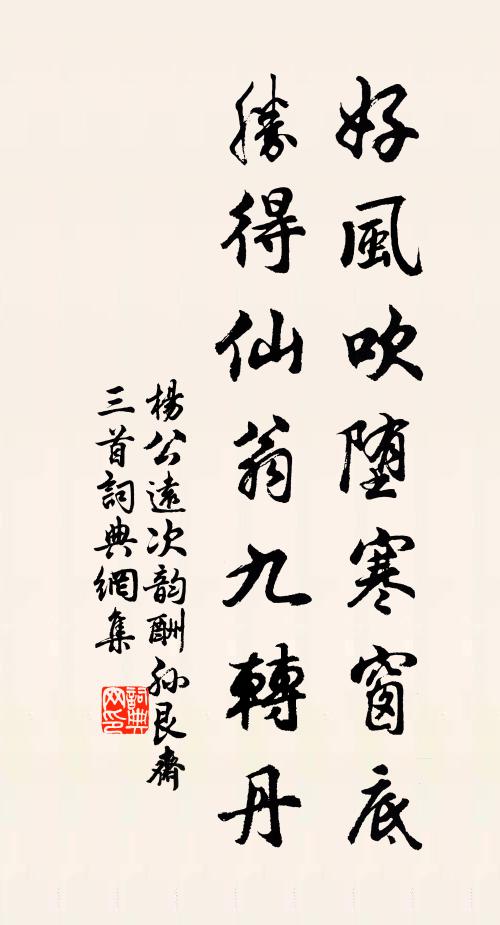 好風吹堕寒窗底
勝得仙翁九轉丹
楊公遠次韵酬孙艮齋
三首詞典網集
詞典网印